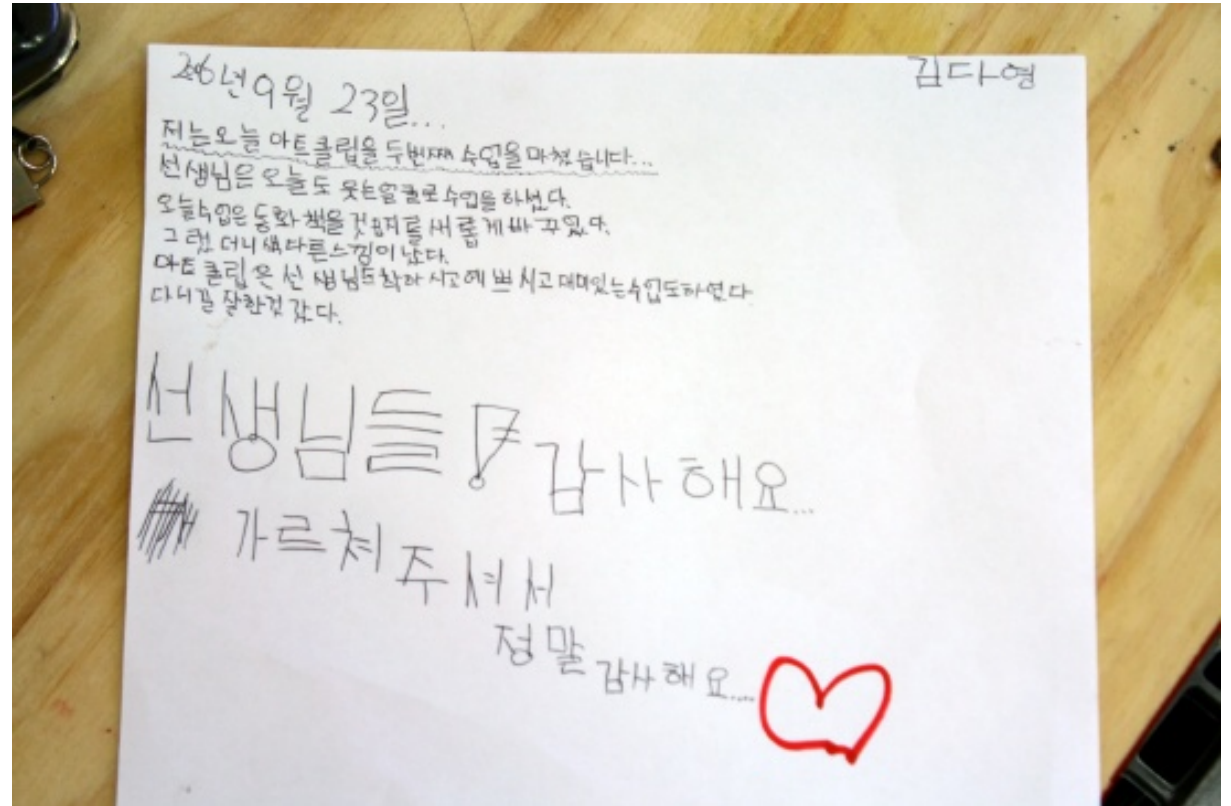 김다영
2006년 9월 23일...
저는 오늘 아트클립을 두번째 수업을 마쳤습니다...
선생님은 오늘도 웃는얼굴로 수업을 하셨다.
오늘수업은 동화책을 겉표지를 새롭게 바꾸었다.
그랬더니 색다른느낌이 났다.
아트클립은 선생님도착하시고 예쁘시고 재미있는수업도하였다
다니길 잘한것 같다.
선생님들! 감사해요...
가르쳐 주셔서
정말 감사해요....